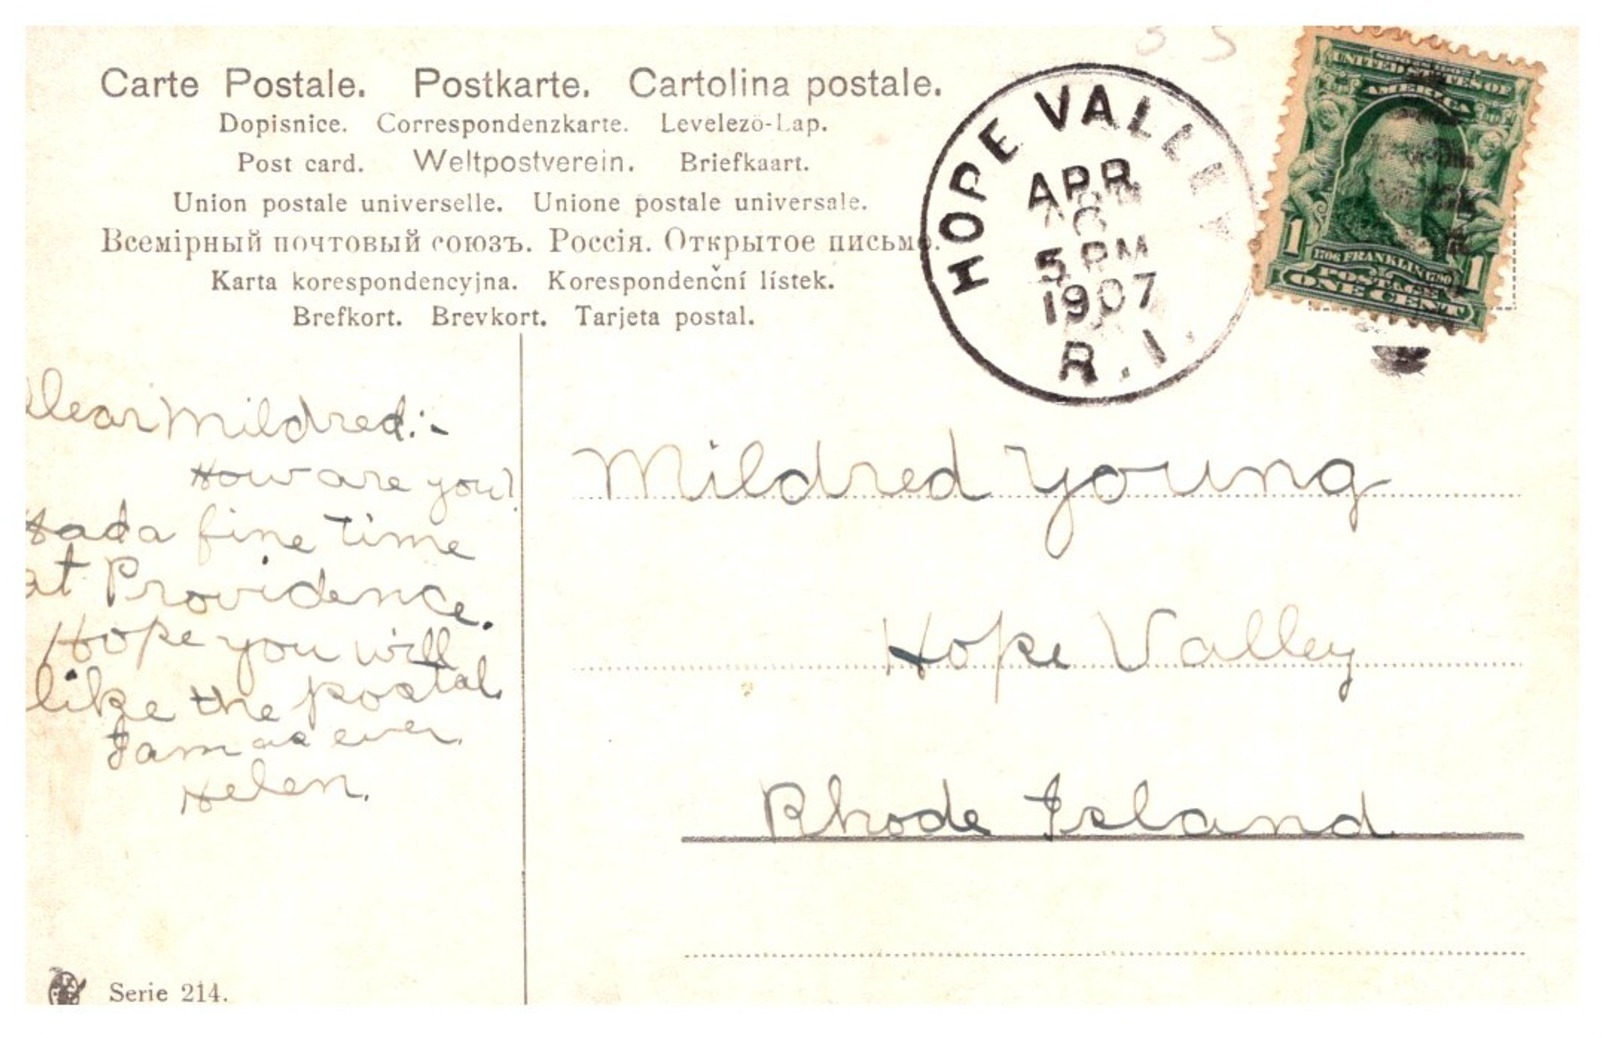 Carte Postale. Postkarte. Cartolina postale.
Dopisnice. Correspondenzkarte. Levelező-Lap.
Post card. Weltpostverein. Briefkaart.
Union postale universelle. Unione postale universale.
Всемірный почтовый союзъ. Россія. Открытое письмо.
Karta korespondencyjna. Korespondenční lístek.
Brefkort. Brevkort. Tarjeta postal.
HOPE VALLEY
APR
6
5 PM
1907
R.I.
UNITED STATES OF
AMERICA
1 1706 FRANKLIN 1790 1
POSTAGE
ONE CENT
Dear Mildred:-
How are you?
Had a fine time
at Providence.
Hope you will
like the postal.
I am as ever
Helen.
Mildred Young
Hope Valley
Rhode Island
Serie 214.